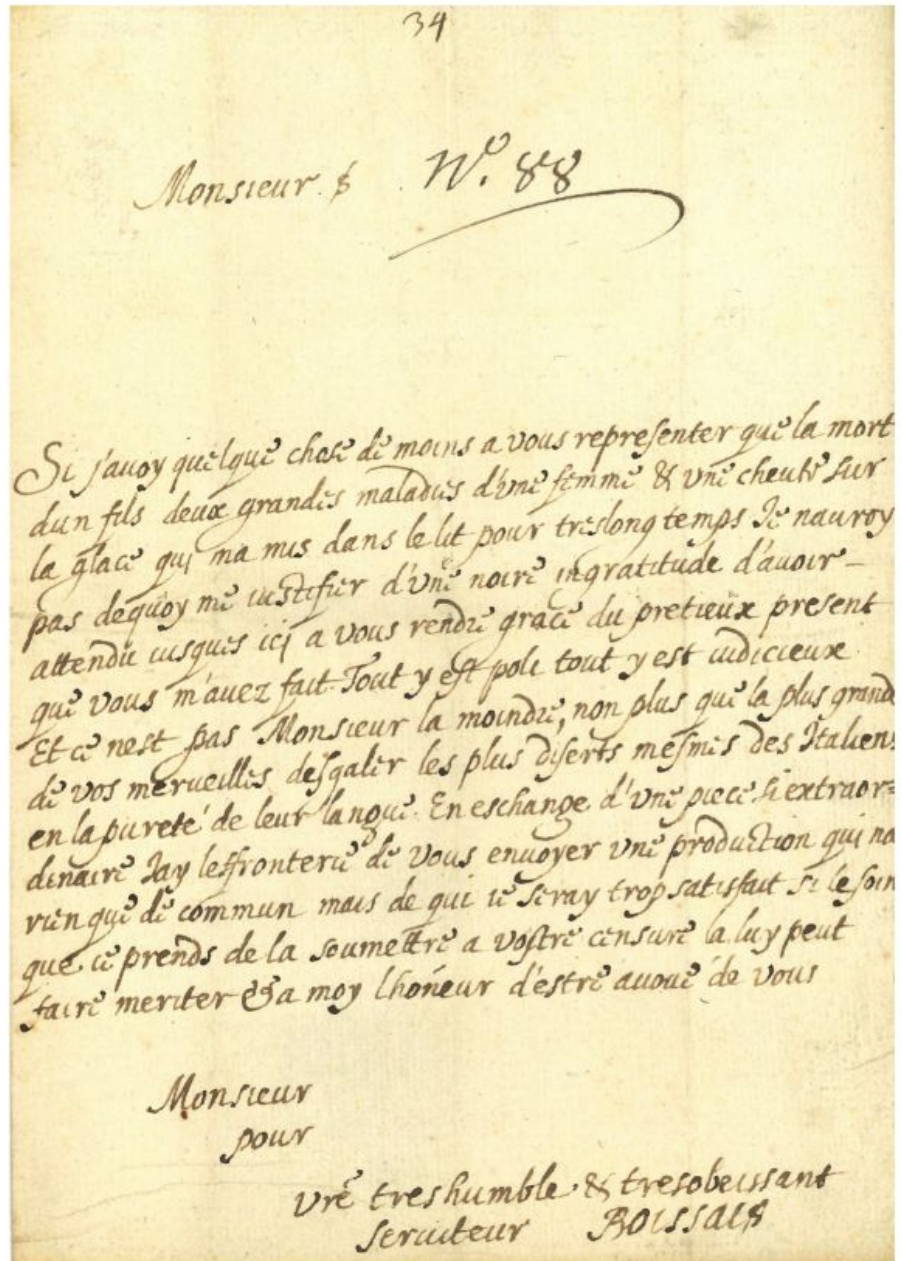 34
Monsieur. $ N.º 88
Si j'auoy quelque chose de moins a vous representer que la mort
dun fils deux grandes maladies d'vne femme & vne cheute sur
la glace qui ma mis dans le lit pour treslong temps Je nauroy
pas dequoy me iustifier d'vne noire ingratitude d'auoir –
attendu iusques ici a vous rendre grace du pretieux present
que vous m'auez fait. Tout y est poli tout y est iudicieux
Et ce nest pas Monsieur la moindre, non plus que la plus grande
de vos merveilles desgaler les plus diserts mesmes des Italiens
en la pureté de leur langue. En eschange d'vne piece si extraor=
dinaire Jay leffronterie de vous enuoyer vne production qui na
rien que de commun mais de qui ie seray trop satisfait si le soin
que ie prends de la soumettre a vostre censure la luy peut
faire meriter & a moy lhoneur d'estre auoué de vous
Monsieur
pour
vrē treshumble & tresobeissant
seruiteur BOISSAIS